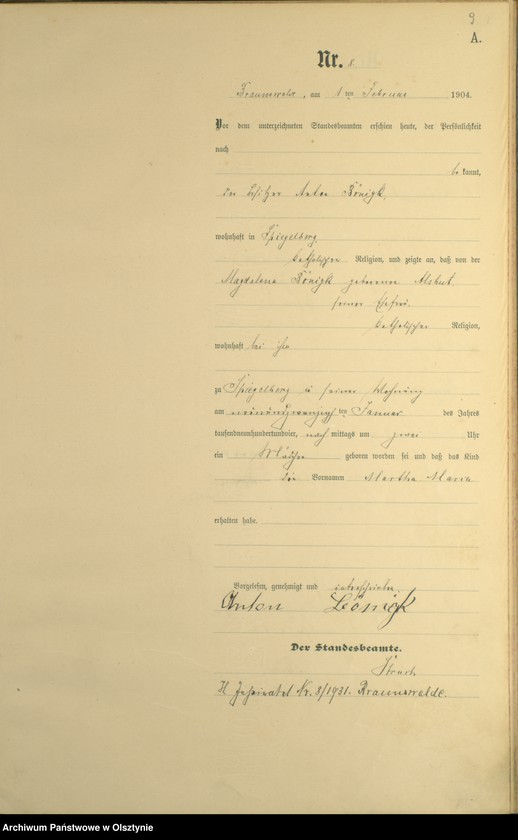 9
A.
Nr. 8
Braunswalde, am 1ten Februar 1904.
Vor dem unterzeichneten Standesbeamten erschien heute, der Persönlichkeit
nach
be kannt,
der Besitzer Anton Königk,
wohnhaft in Spiegelberg
katholischer Religion, und zeigte an, daß von der
Magdalena Königk geborenen
seiner Ehefrau,
katholischer Religion,
wohnhaft bei ihm
zu Spiegelberg in seiner Wohnung
am neunundzwanzigsten Januar des Jahres
tausendneunhundertundvier, nach mittags um zwei Uhr
ein Mädchen geboren worden sei und daß das Kind
die Vornamen Martha Maria
erhalten habe.
Vorgelesen, genehmigt und unterschrieben
Anton Königk
Der Standesbeamte.
Nr. 8/1931. Braunswalde.
Archiwum Państwowe w Olsztynie